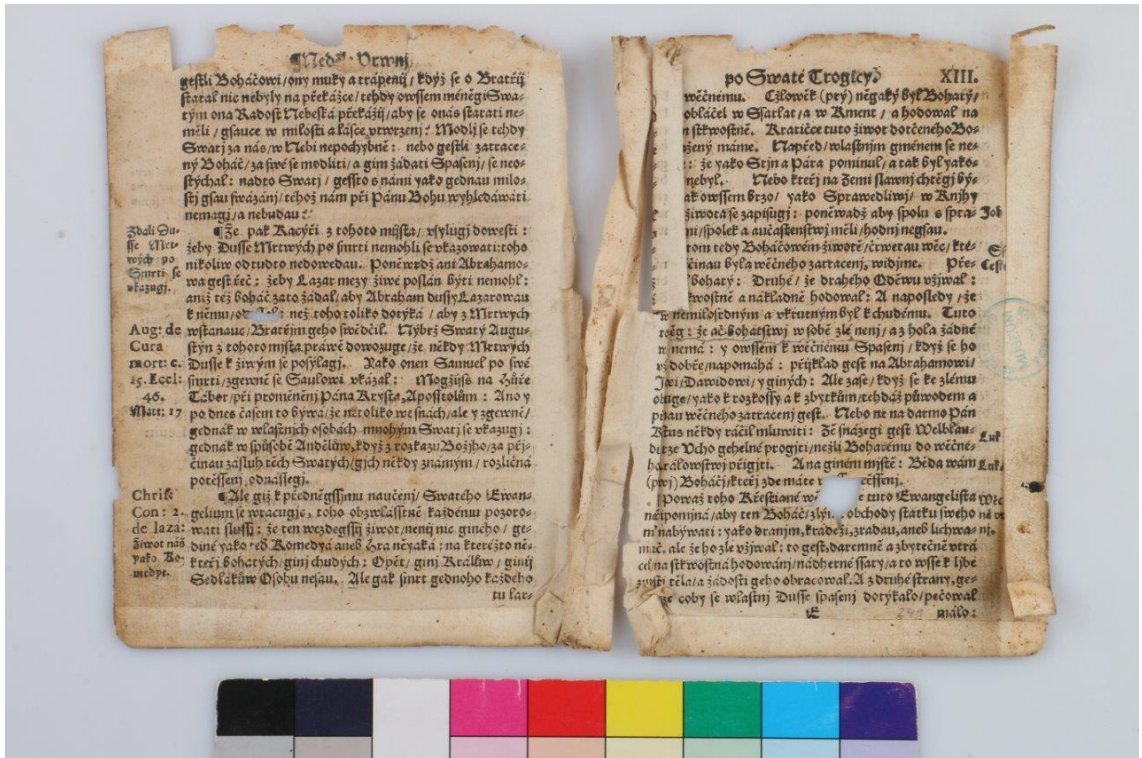 ¶Neděle Prwnj
gestli Boháčowi / ony muky a trápenij / když se o Bratřij
staral nic nebyly na překážce / tehdy owssem méněgi Swa-
tým ona Radost Nebeská překážij / aby se onás starati ne-
měli / gsauce w milosti a lásce vtwrzenj: Modlij se tehdy
Swatj za nás / w Nebi nepochybně: nebo gestli zatrace-
ný Boháč / za swé se modliti / a gim žádati Spasenj / se neo-
stýchal: nadto Swatj / gessto s námi yako gednau milo-
stj gsau swázánj / téhož nám při Pánu Bohu wyhledáwati
nemagj / a nebudau:
¶Že pak Kacýři z tohoto mijsta / vsylugj dowesti:
žeby Dusse Mrtwých po smrti nemohli se vkazowati: toho
nikoliw odtudto nedowedau. Poněwrdž ani Abrahamo-
wa gest řeč: žeby Lazar mezy žiwé poslán býti nemohl:
aniž též boháč zato žádal / aby Abraham dussy Lazarowau
k němu než toho toliko dotýká / aby z Mrtwych
wstanauc / Bratřjm geho swědčil. Nýbrž Swatý Augu-
stýn z tohoto mjsta práwě dowozuge, že někdy Mrtwých
Dusse k žiwým se posýlagj. Yako onen Samuel po swé
smrti / zgewně se Saulowi vkázal: Mogžijss na Hůře
Tábor / při proměněnj Pána Krysta, Apostolům: Ano y
po dnes časem to býwá / že netoliko we snách / ale y zgewně /
gednak w wlastnjch osobách mnohým Swatj se vkazugj:
gednak w spůsobě Andělůw, když z rozkazu Božjho / za pěj-
činau zásluh těch Swatých / gich někdy známým / rozličná
potěssenj, odnássegj.
¶Ale giž k přednĕgssjmu naučenj / Swatého Ewan-
gelium se wracugjc, toho obzwlásstně každému pozoro-
wati slussj: že ten wezdegssj žiwot / nenij nic giného / ge-
diné yako ed Komedya aneb Hra něyaká: na kteréžto ně-
kteřj bohatých / ginj chudých: Opět / ginj Králůw / ginij
Sedlákůw Osobu nesau. Ale gak smrt gednoho každého
tu lar-
Zdali Du-
sse Mrt-
wých po
Smrti se
vkazugj.
Aug: de
Cura
mort: c.
15. Eccl:
46.
Matt: 17
Chris:
Con: 2.
de laza:
Žiwot náš
yako Ko-
medye.
po Swaté Trogicy. XIII.
wěčnému. Czlowěk (prý) něgaký byl Bohatý /
obláčel w Ssarlat / a w Kment / a hodowal na
stkwostně. Kratičce tuto žiwot dotčeného Bo-
ženy máme. Napřed / wlastnjm gménem se ne-
: že yako Stjn a Pára pominul / a tak byl yako-
nebyl. Nebo kteřj na Zemi slawnj chtěgj bý-
ak owssem brzo / yako Sprawedliwj / w Knjhy
žiwota se zapisugj: poněwadž aby spolu s spra-
nj / spolek a aučastenstwj měli / hodnj negsau.
tom tedy Boháčowém žiwotě / čtwerau wěc / kte-
činau byla wěčného zatracenj, widjme. Pře-
bohatý: Druhé / že drahého Oděwu vžjwal:
kwostně a nákladně hodowal: A naposledy / že
nemilosrdným a vkrutným byl k chudému. Tuto
: že ač bohatstwj w sobě zlé nenj / a z hola žádné
nemá: y owssem k wěčnému Spasenj / když se ho
dobře / napomahá: přijklad gest na Abrahamowi /
Dawidowi / y giných: Ale zase / když se ke zlému
yako k rozkossy a k zbytkům / tehdáž půwodem a
wěčného zatracenj gest. Nebo ne na darmo Pán
někdy ráčil mluwiti: Že snázegi gest Welblau-
Vcho gehelné progjti / nežli Bohatému do wěčné-
přigjti. A na giném mjstě: Běda wám
Boháčj / kteřj zde máte
Powaž toho Křestiané tuto Ewangelista
připomjná / aby ten Boháč / zlými obchody statku swého
nabýwati: yako dranjm, kradežj, zradau, aneb lichwa-
ale že ho zle vžjwal: to gest, daremně a zbytečně vtrá
na stkwostná hodowánj / nádherné ssaty / a to wsse k libé
těla / a žádosti geho obracowal. A z druhé strany, ge-
coby se wlastnj Dusse spasenj dotýkalo / pečowal
E 249 málo:
Job
Luk
Luk.